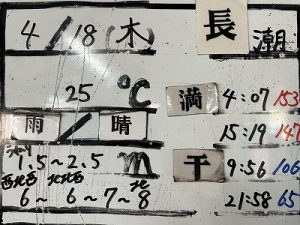 4/18(木) 長潮
25℃ 満 4:07 153
雨/晴 15:19 147
1.5~2.5m 干 9:56 106
西北西 北北西 北
6~ 6~7~8 21:58 65